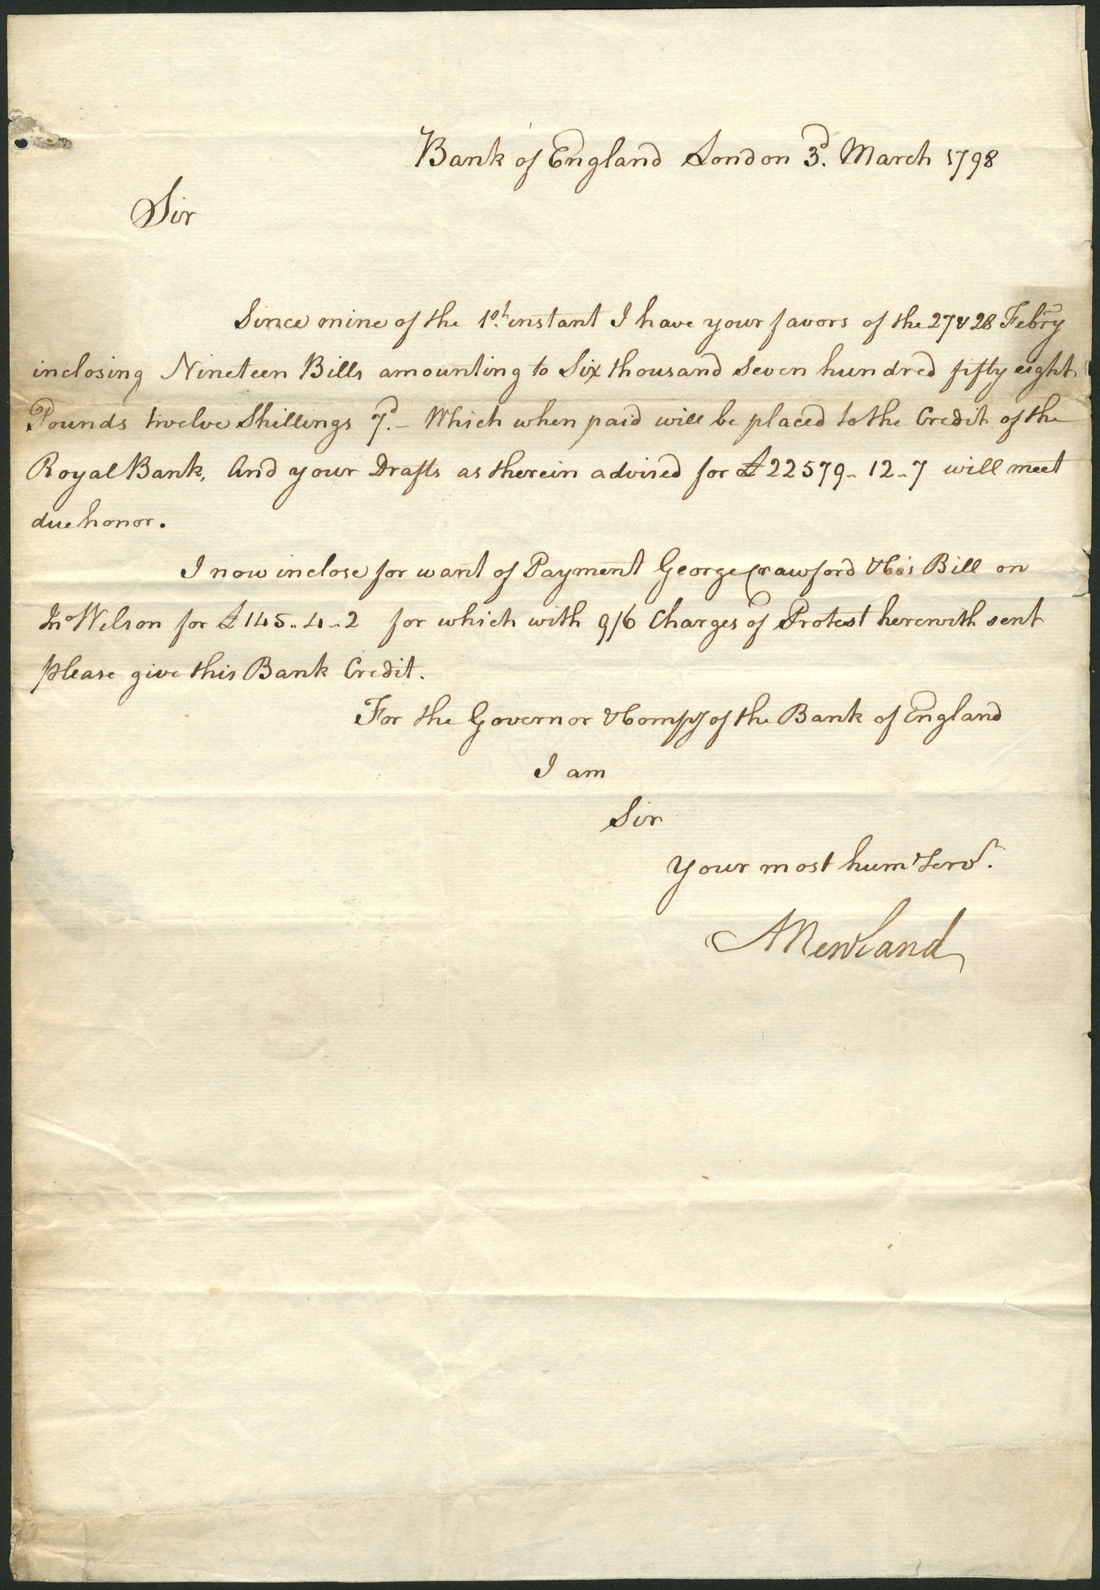 Bank of England London 3d. March 1798
Sir
Since mine of the 1st. instant I have your favors of the 27 & 28 Febry
inclosing Nineteen Bills amounting to Six thousand Seven hundred fifty eight
Pounds twelve Shillings 7d.– Which when paid will be placed to the Credit of the
Royal Bank, And your Drafts as therein advised for £22579–12–7 will meet
due honor.
I now inclose for want of Payment George Crawford & Cos Bill on
Jno Wilson for £145..4–2 for which with 9/6 Charges of Protest herewith sent
please give this Bank Credit.
For the Governor & Compy of the Bank of England
I am
Sir
Your most hume Servt.
A Newland